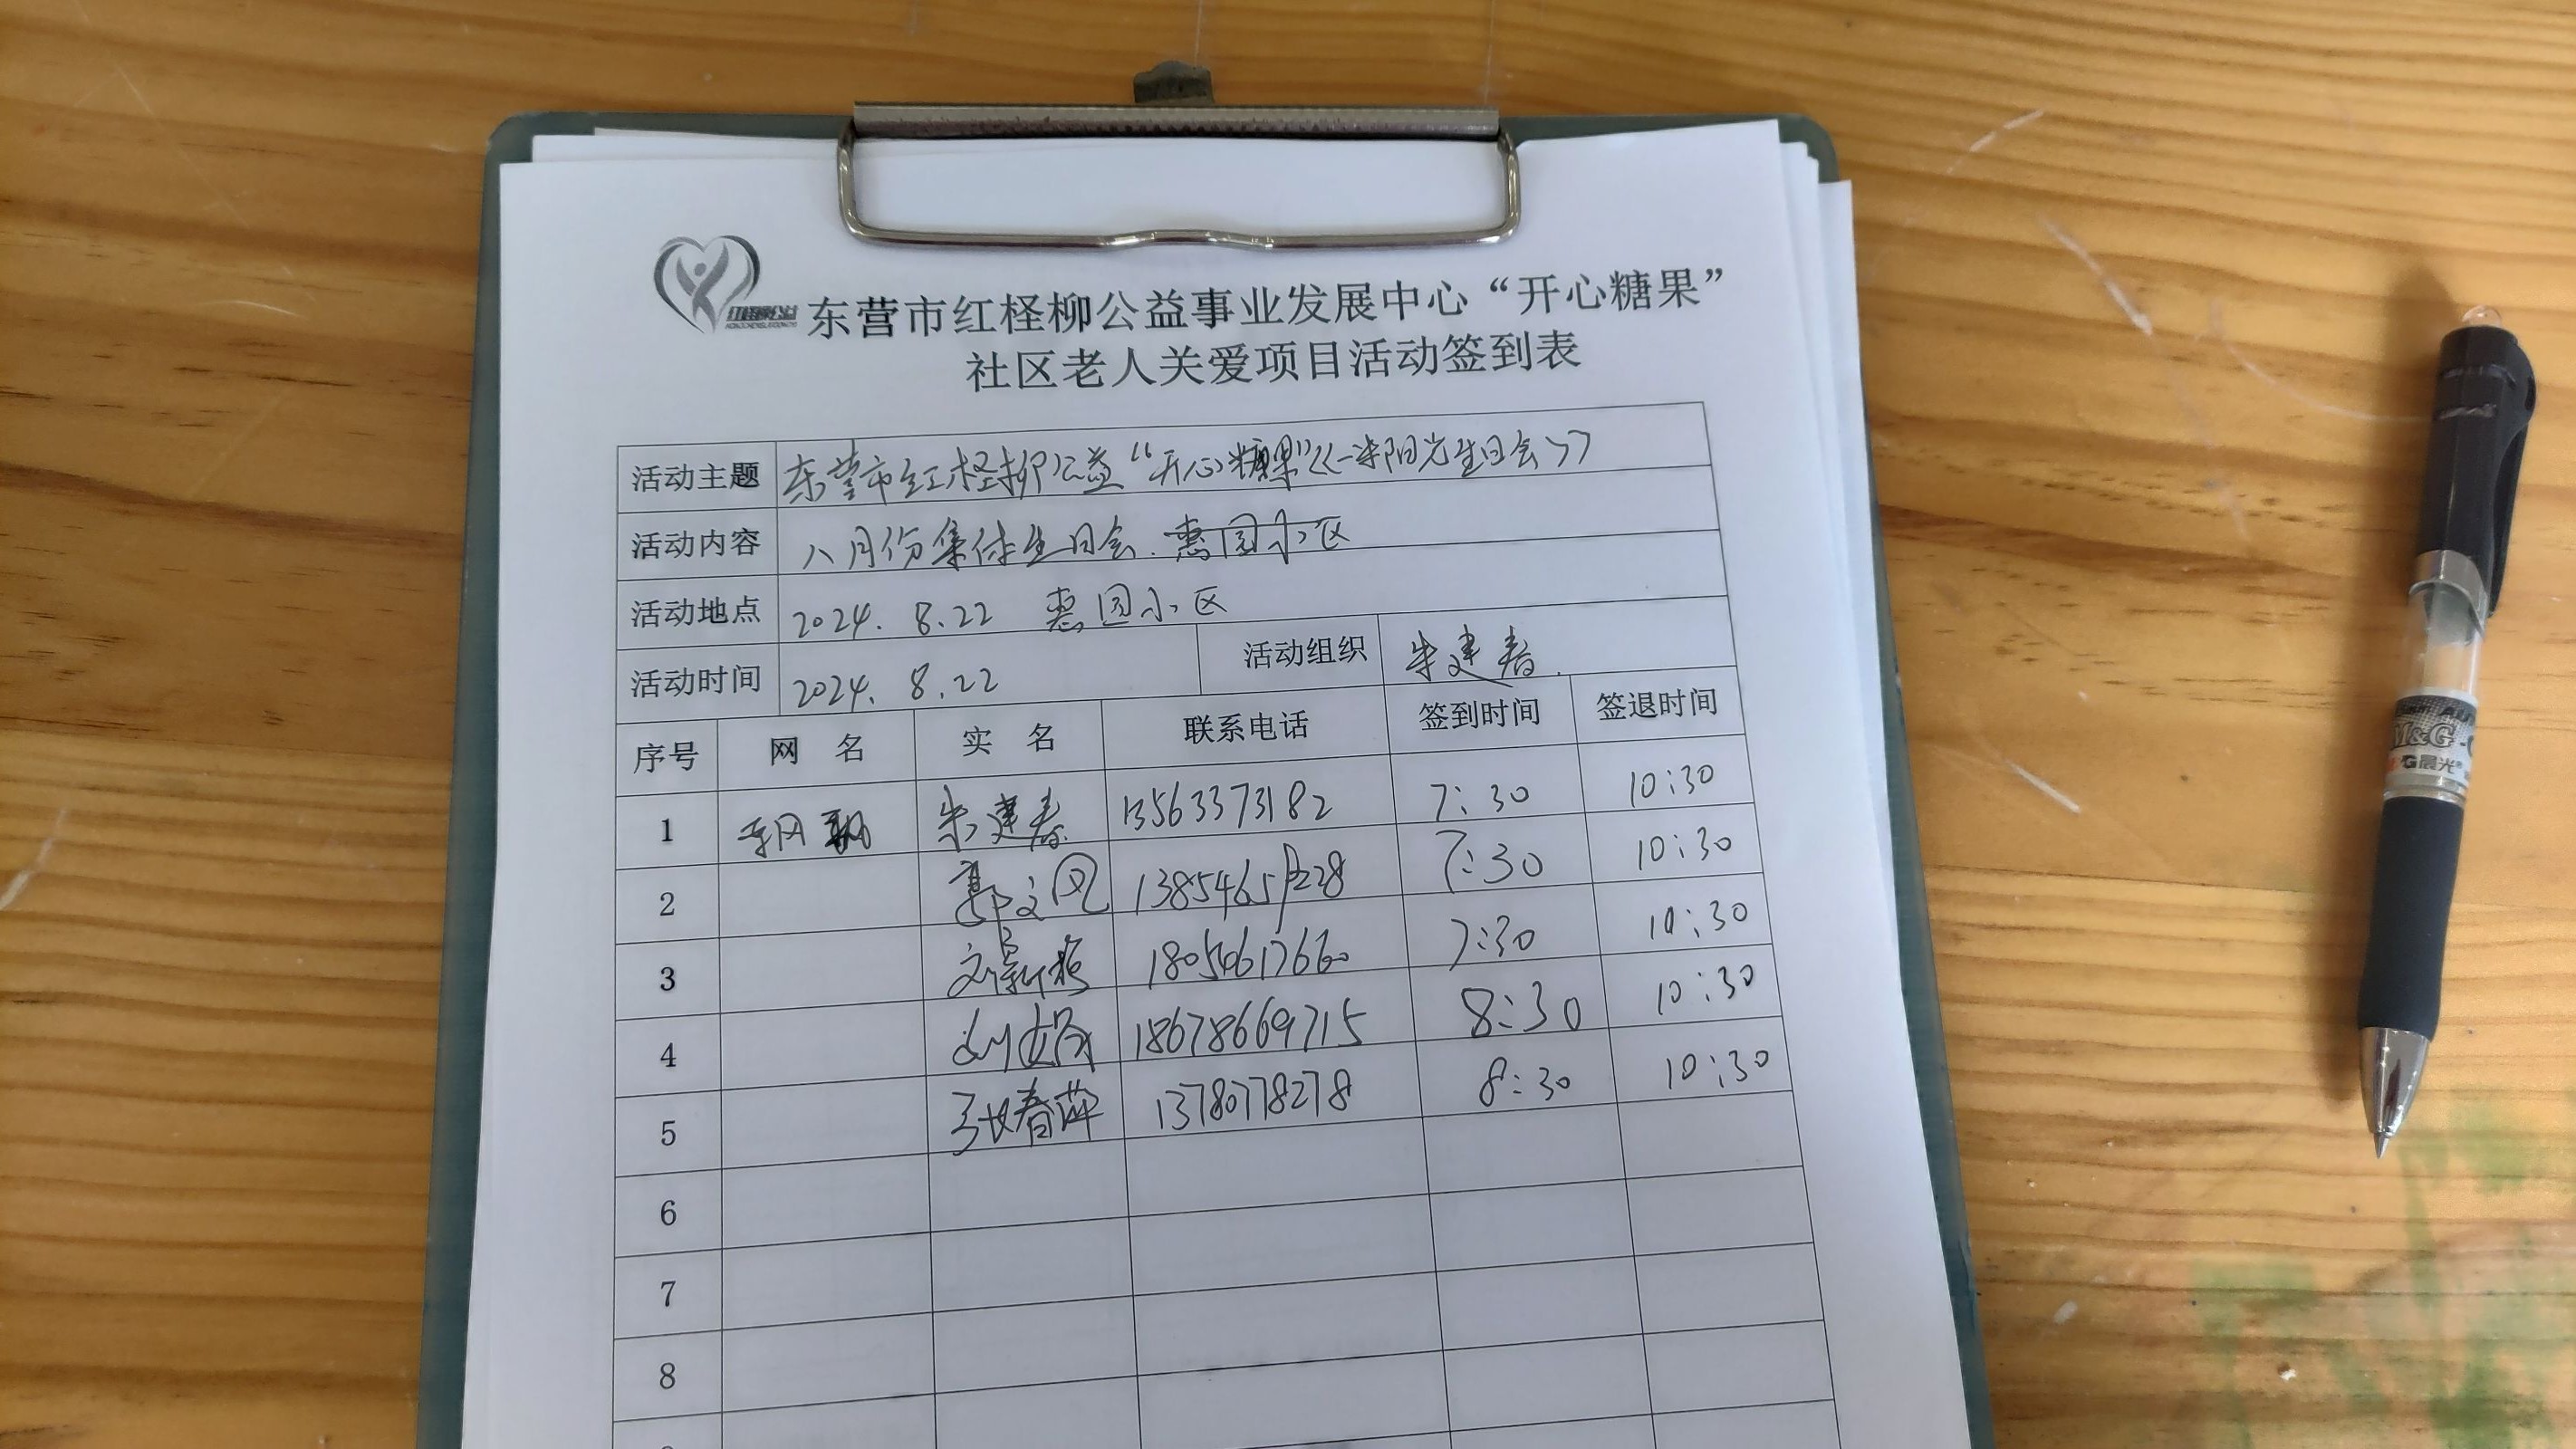 东营市红柽柳公益事业发展中心“开心糖果”
社区老人关爱项目活动签到表
活动主题 东营市红柽柳公益“开心糖果”《一米阳光生日会》
活动内容 八月份集体生日会.惠园小区
活动地点 2024. 8.22 惠园小区
活动时间 2024. 8.22 活动组织 朱建春.
序号 网 名 实 名 联系电话 签到时间 签退时间
1 朱建春 13563373182 7:30 10:30
2 郭文风 7:30 10:30
3 刘新梅 18054617660 7:30 10:30
4 18678669715 8:30 10:30
5 张春萍 13780778278 8:30 10:30
6
7
8
M&G
M&G晨光